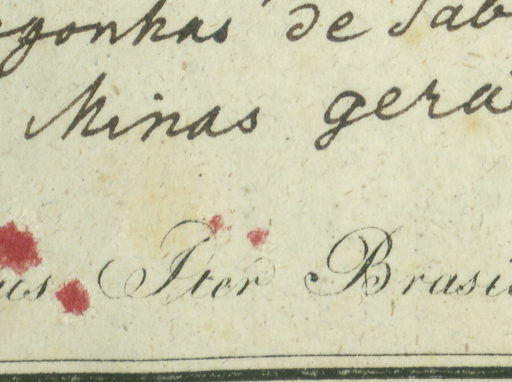 gonhas de Sab
Minas gera
us Iter Brasi